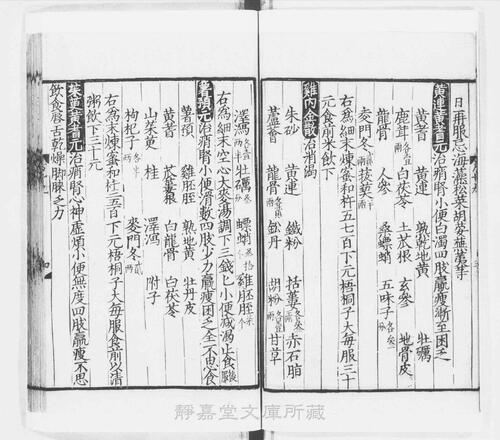 日再服忌海藻菘菜胡荽蕪荑等
黄連黄耆元治消腎小便白濁四肢羸瘦漸至困乏
黄耆 黄連 熟乾地黄 牡蠣
鹿茸 白茯苓 土𤓰根 玄參 地骨皮
龍骨 人參 桑螵蛸 五味子
麥門冬 菝葜
右為末煉蜜和杵五七百下元梧桐子大每服三十
元食前米飲下
雞内金散治消渴
朱砂 黄連 鐵粉 括蔞 赤石脂
蘆薈 龍骨 鈆丹 胡粉 甘草
澤瀉 牡蠣 螵蛸 雞胵胵
右為細末空心大麥湯調下三錢匕小便減渴止食
薯蕷元治消腎小便滑數四肢少力羸瘦困乏全不思食
薯蕷 雞胵胵 熟地黄 牡丹皮
黄耆 白龍骨 白茯苓
山茱萸 桂 附子
枸杞子 麥門冬 澤瀉
右為末煉蜜和杵三百下元梧桐子大每服食前以清
粥飲下三十元
黄耆元治消腎心神虚煩小便無度四肢羸瘦不思
飲食唇舌乾燥脚膝乏力
靜嘉堂文庫所藏